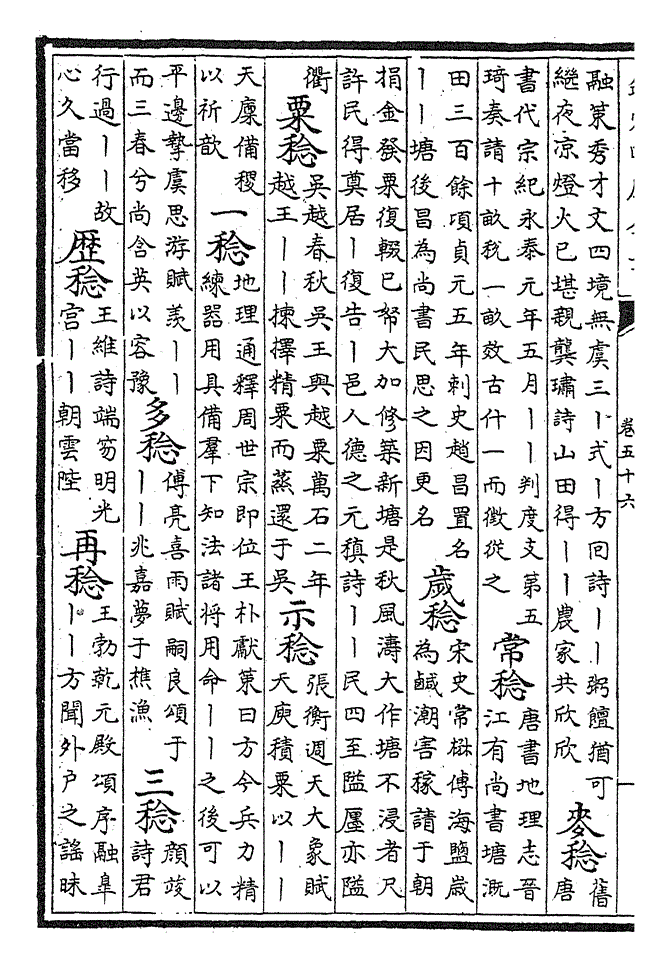 卷五十六
一
融策秀才文四境無虞三丨式丨方囘詩丨丨粥饘猶可
繼夜涼燈火已堪親龔璛詩山田得丨丨農家共欣欣
麥稔
舊
唐
書代宗紀永泰元年五月丨丨判度支第五
琦奏請十畝稅一畝效古什一而徵從之
常稔
唐書地理志晉
江有尚書塘溉
田三百餘項貞元五年刺史趙昌置名
丨丨塘後昌為尚書民思之因更名
歲稔
宋史常楙傳海鹽歲
為鹹潮害稼請于朝
捐金發粟復輟已帑大加修築新塘是秋風濤大作塘不浸者尺
許民得奠居丨復告丨邑人德之元稹詩丨丨民四至隘廛亦隘
衢
粟稔
吳越春秋吳王與越粟萬石二年
越王丨丨揀擇精粟而蒸還于吳
示稔
張衡週天大象賦
天庾積粟以丨丨
天廩備稷
以祈歆
一稔
地理通釋周世宗即位王朴獻策曰方今兵力精
練器用具備羣下知法諸將用命丨丨之後可以
平邊摯虞思游賦羨丨丨
而三春兮尚含英以容豫
多稔
傅亮喜雨賦嗣良頌于
丨丨兆嘉夢于樵漁
三稔
顔竣
詩君
行過丨丨故
心久當移
歴稔
王維詩端笏明光
宫丨丨朝雲陛
再稔
王勃乾元殿頌序融臯
丨丨方聞外户之謡昧